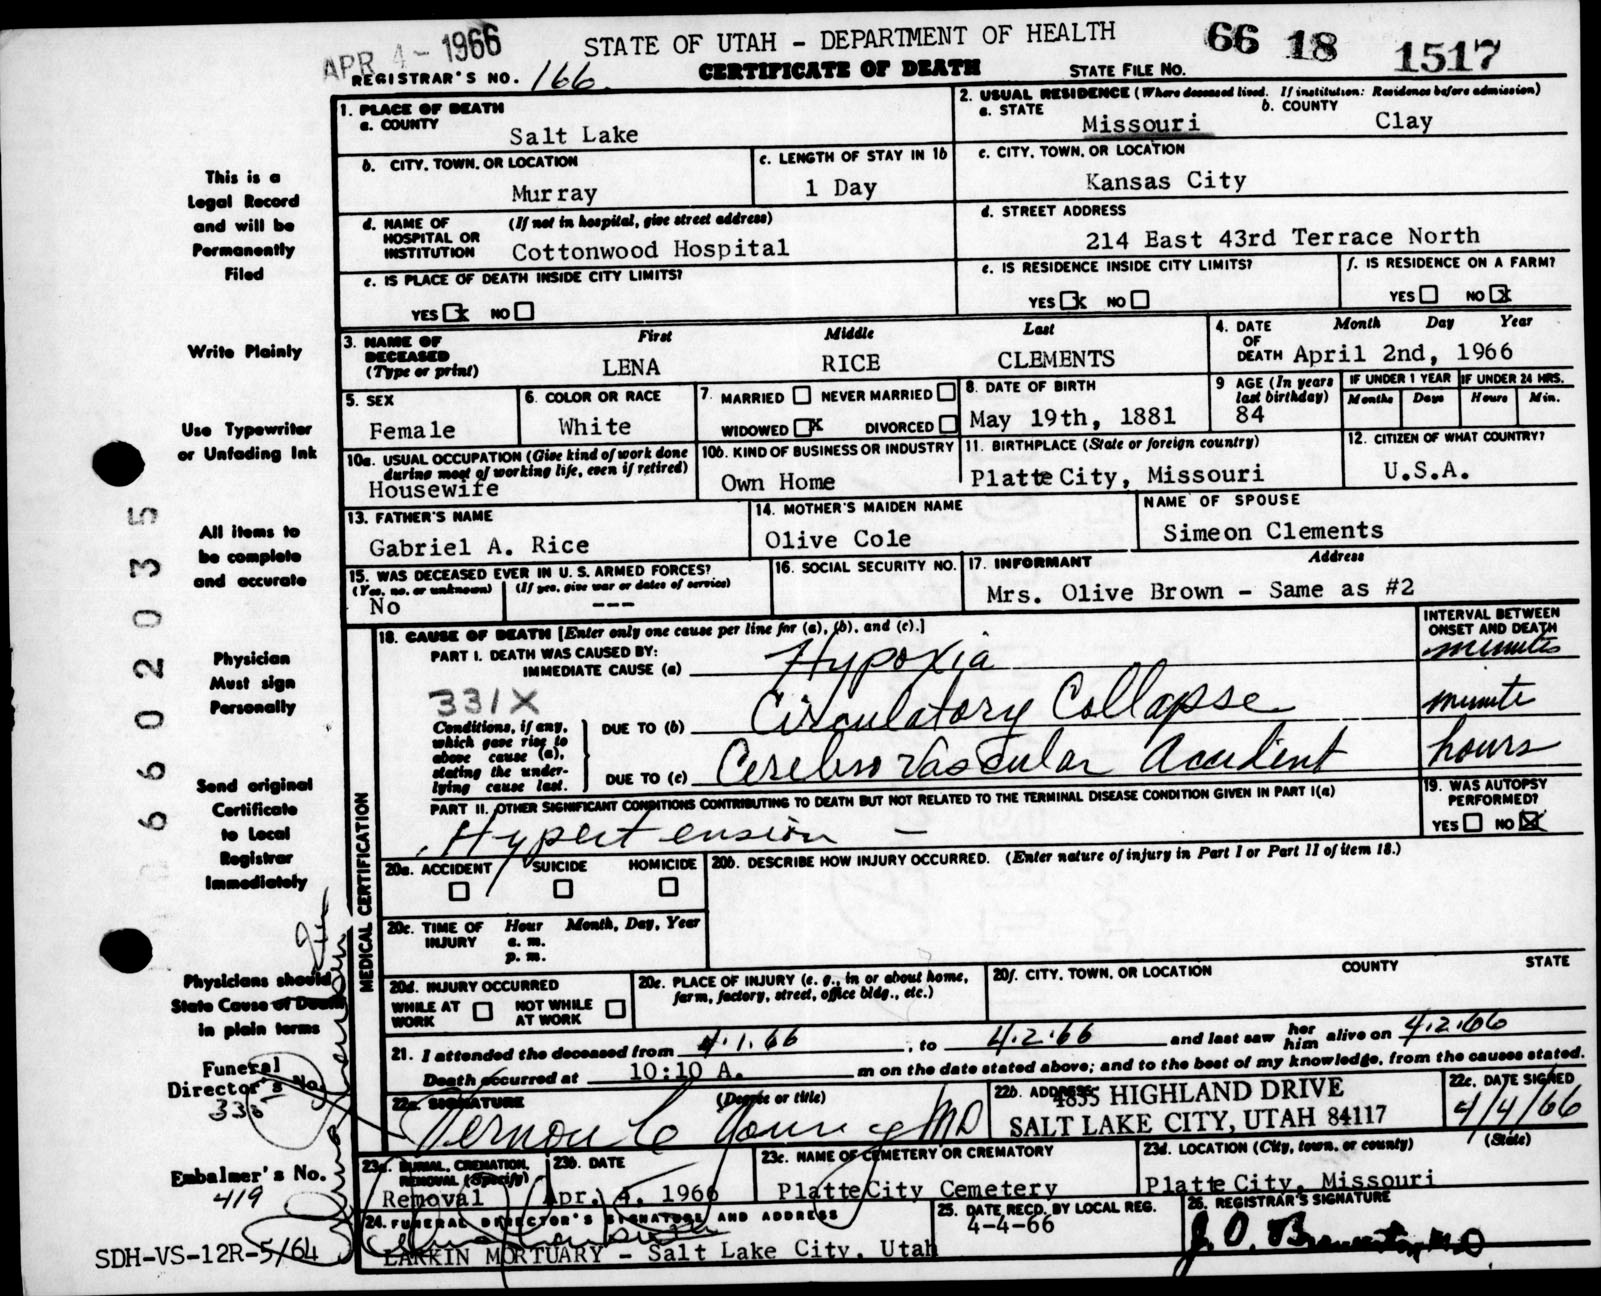 APR 4 - 1966
STATE OF UTAH - DEPARTMENT OF HEALTH
66 18 1517
REGISTRAR'S NO. 166
CERTIFICATE OF DEATH
STATE FILE NO.
1. PLACE OF DEATH
a. COUNTY
Salt Lake
2. USUAL RESIDENCE (Where deceased lived. If institution: Residence before admission)
a. STATE
Missouri
b. COUNTY
Clay
b. CITY, TOWN, OR LOCATION
Murray
c. LENGTH OF STAY IN 1b
1 Day
c. CITY, TOWN, OR LOCATION
Kansas City
d. NAME OF HOSPITAL OR INSTITUTION
(If not in hospital, give street address)
Cottonwood Hospital
d. STREET ADDRESS
214 East 43rd Terrace North
e. IS PLACE OF DEATH INSIDE CITY LIMITS?
YES x NO
e. IS RESIDENCE INSIDE CITY LIMITS?
YES x NO
f. IS RESIDENCE ON A FARM?
YES NO x
3. NAME OF DECEASED (Type or print)
First Middle Last
LENA RICE CLEMENTS
4. DATE OF DEATH
Month Day Year
April 2nd, 1966
5. SEX
Female
6. COLOR OR RACE
White
7. MARRIED NEVER MARRIED
WIDOWED x DIVORCED
8. DATE OF BIRTH
May 19th, 1881
9 AGE (In years last birthday)
84
IF UNDER 1 YEAR
Months Days
IF UNDER 24 HRS.
Hours Min.
10a. USUAL OCCUPATION (Give kind of work done during most of working life, even if retired)
Housewife
10b. KIND OF BUSINESS OR INDUSTRY
Own Home
11. BIRTHPLACE (State or foreign country)
Platte City, Missouri
12. CITIZEN OF WHAT COUNTRY?
U.S.A.
13. FATHER'S NAME
Gabriel A. Rice
14. MOTHER'S MAIDEN NAME
Olive Cole
NAME OF SPOUSE
Simeon Clements
15. WAS DECEASED EVER IN U. S. ARMED FORCES?
(Yes, no, or unknown) (If yes, give war or dates of service)
No ---
16. SOCIAL SECURITY NO.
17. INFORMANT Address
Mrs. Olive Brown - Same as #2
18. CAUSE OF DEATH [Enter only one cause per line for (a), (b), and (c).]
PART I. DEATH WAS CAUSED BY:
IMMEDIATE CAUSE (a) Hypoxia
INTERVAL BETWEEN ONSET AND DEATH
minutes
331X
Conditions, if any, which gave rise to above cause (a), stating the underlying cause last.
DUE TO (b) Circulatory Collapse
minute
DUE TO (c) Cerebro Vascular Accident
hours
PART II. OTHER SIGNIFICANT CONDITIONS CONTRIBUTING TO DEATH BUT NOT RELATED TO THE TERMINAL DISEASE CONDITION GIVEN IN PART I(a)
Hypertension -
19. WAS AUTOPSY PERFORMED?
YES NO x
20a. ACCIDENT SUICIDE HOMICIDE
20b. DESCRIBE HOW INJURY OCCURRED. (Enter nature of injury in Part I or Part II of item 18.)
20c. TIME OF INJURY
Hour Month, Day, Year
a. m.
p. m.
20d. INJURY OCCURRED
WHILE AT WORK NOT WHILE AT WORK
20e. PLACE OF INJURY (e. g., in or about home, farm, factory, street, office bldg., etc.)
20f. CITY, TOWN, OR LOCATION COUNTY STATE
21. I attended the deceased from 4.1.66, to 4.2.66 and last saw her him alive on 4.2.66
Death occurred at 10:10 A. m on the date stated above; and to the best of my knowledge, from the causes stated.
22a. SIGNATURE (Degree or title)
Vernon C Young MD
22b. ADDRESS
4835 HIGHLAND DRIVE
SALT LAKE CITY, UTAH 84117
22c. DATE SIGNED
4/4/66
23a. BURIAL, CREMATION, REMOVAL (Specify)
Removal
23b. DATE
Apr. 4, 1966
23c. NAME OF CEMETERY OR CREMATORY
Platte City Cemetery
23d. LOCATION (City, town, or county) (State)
Platte City, Missouri
24. FUNERAL DIRECTOR'S SIGNATURE AND ADDRESS
LARKIN MORTUARY - Salt Lake City, Utah
25. DATE RECD. BY LOCAL REG.
4-4-66
26. REGISTRAR'S SIGNATURE
MEDICAL CERTIFICATION
This is a
Legal Record
and will be
Permanently
Filed
Write Plainly
Use Typewriter
or Unfading Ink
All items to
be complete
and accurate
Physician
Must sign
Personally
Send original
Certificate
to Local
Registrar
Immediately
Physicians should
State Cause of Death
in plain terms
Funeral
Director's No.
335
Embalmer's No.
419
SDH-VS-12R-5/64
6602035